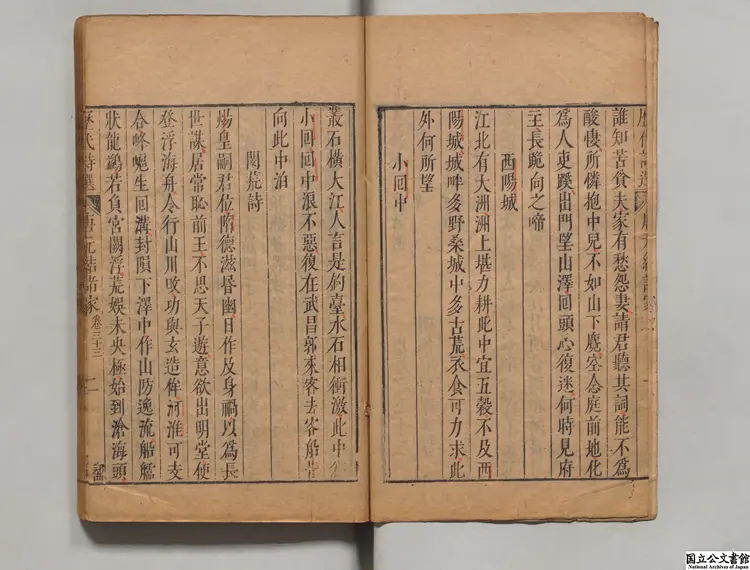 誰知苦貧夫家有愁怨妻請君聽其詞能不為
酸悽所憐抱中兒不如山下麑空念庭前地化
為人吏蹊出門望山澤回頭心復迷何時見府
主長跪向之啼
西陽城
江北有大洲洲上堪力耕此中宜五穀不及西
陽城城畔多野桑城中多古荒衣食可力求此
外何所望
小回中
叢石橫大江人言是釣臺水石相衝激此中為
小回回中浪不惡復在武昌郭來客去客船皆
向此中泊
閔荒詩
煬皇嗣君位隋德滋昏幽日作及身禍以為長
世謀居常恥前王不思天子遊意欲出明堂便
登浮海舟令行山川改功與玄造侔河淮可支
合峰嶁生回溝封隕下澤中作山防逸流船艦
狀龍鷁若負宮闕浮荒娛未央極始到滄海頭
歷代詩選
唐元結詩家
卷三十三
國立公文書館
National Archives of Japan